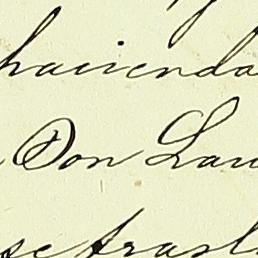 hacienda
Don Lau
se trasl